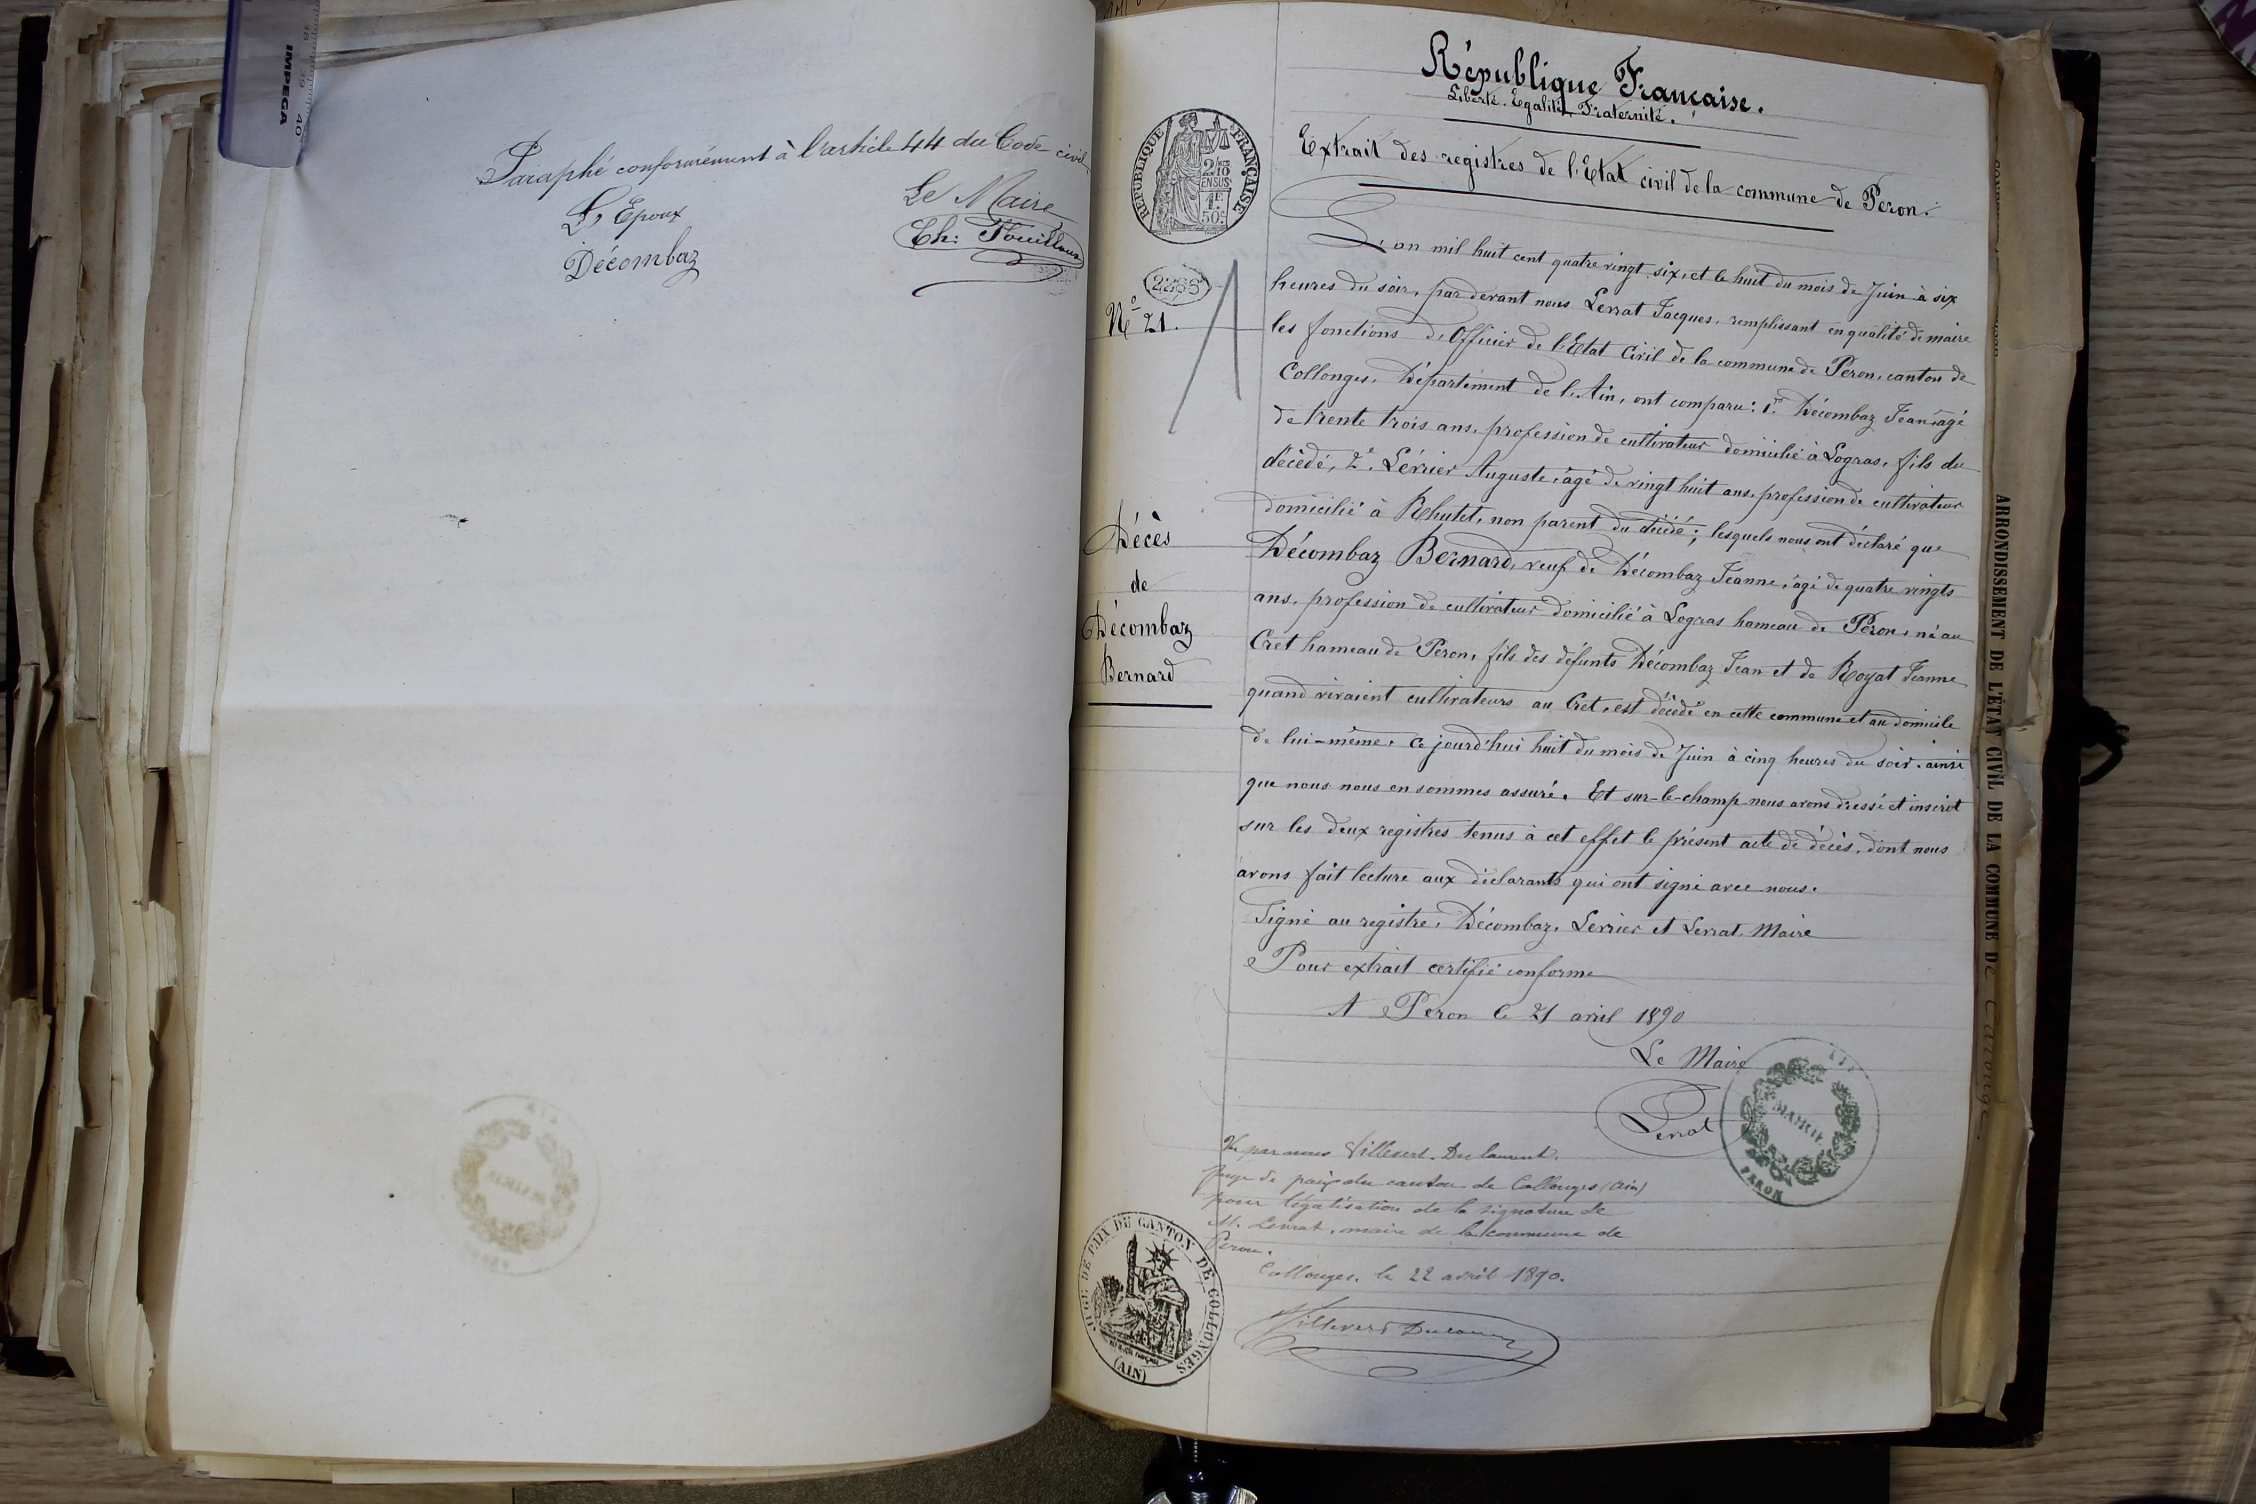 IMPEGA
39 40
Paraphé conformément à l'article 44 du Code civil
L'Epoux
Décombaz
Le Maire
Ch: Fouilloux
République Française.
Liberté. Egalité. Fraternité.
Extrait des registres de l'Etat civil de la commune de Péron.
RÉPUBLIQUE FRANÇAISE
2/10 EN SUS
1F 50c
2286
No 21.
Décès
de
Décombaz
Bernard
L'an mil huit cent quatre vingt six, et le huit du mois de Juin à six
heures du soir, par devant nous Levrat Jacques, remplissant en qualité de maire
les fonctions d'Officier de l'Etat Civil de la commune de Péron, canton de
Collonges, Département de l'Ain, ont comparu: 1er Décombaz Jean, âgé
de trente trois ans, profession de cultivateur domicilié à Logras, fils du
décédé, 2e Lévrier Auguste, âgé de vingt huit ans, profession de cultivateur
domicilié à Rhutet, non parent du décédé; lesquels nous ont déclaré que
Décombaz Bernard, veuf de Décombaz Jeanne, âgé de quatre vingts
ans, profession de cultivateur domicilié à Logras hameau de Péron, né au
Cret hameau de Péron, fils des défunts Décombaz Jean et de Royat Jeanne
quand vivaient cultivateurs au Cret, est décédé en cette commune et au domicile
de lui-même, ce jourd'hui huit du mois de Juin à cinq heures du soir, ainsi
que nous nous en sommes assuré. Et sur-le-champ nous avons dressé et inscrit
sur les deux registres tenus à cet effet le présent acte de décès, dont nous
avons fait lecture aux déclarants qui ont signé avec nous.
Signé au registre, Décombaz, Lévrier et Levrat, Maire
Pour extrait certifié conforme
A Péron le 21 avril 1890
Le Maire
Levrat
MAIRIE
PERON
Vu par nous Villevert-Dulaurent,
juge de paix du canton de Collonges (Ain)
pour légalisation de la signature de
M. Levrat, maire de la commune de
Péron.
Collonges, le 22 avril 1890.
JUGE DE PAIX DU CANTON DE COLLONGES
(AIN)
ARRONDISSEMENT DE L'ÉTAT CIVIL DE LA COMMUNE DE Carouge